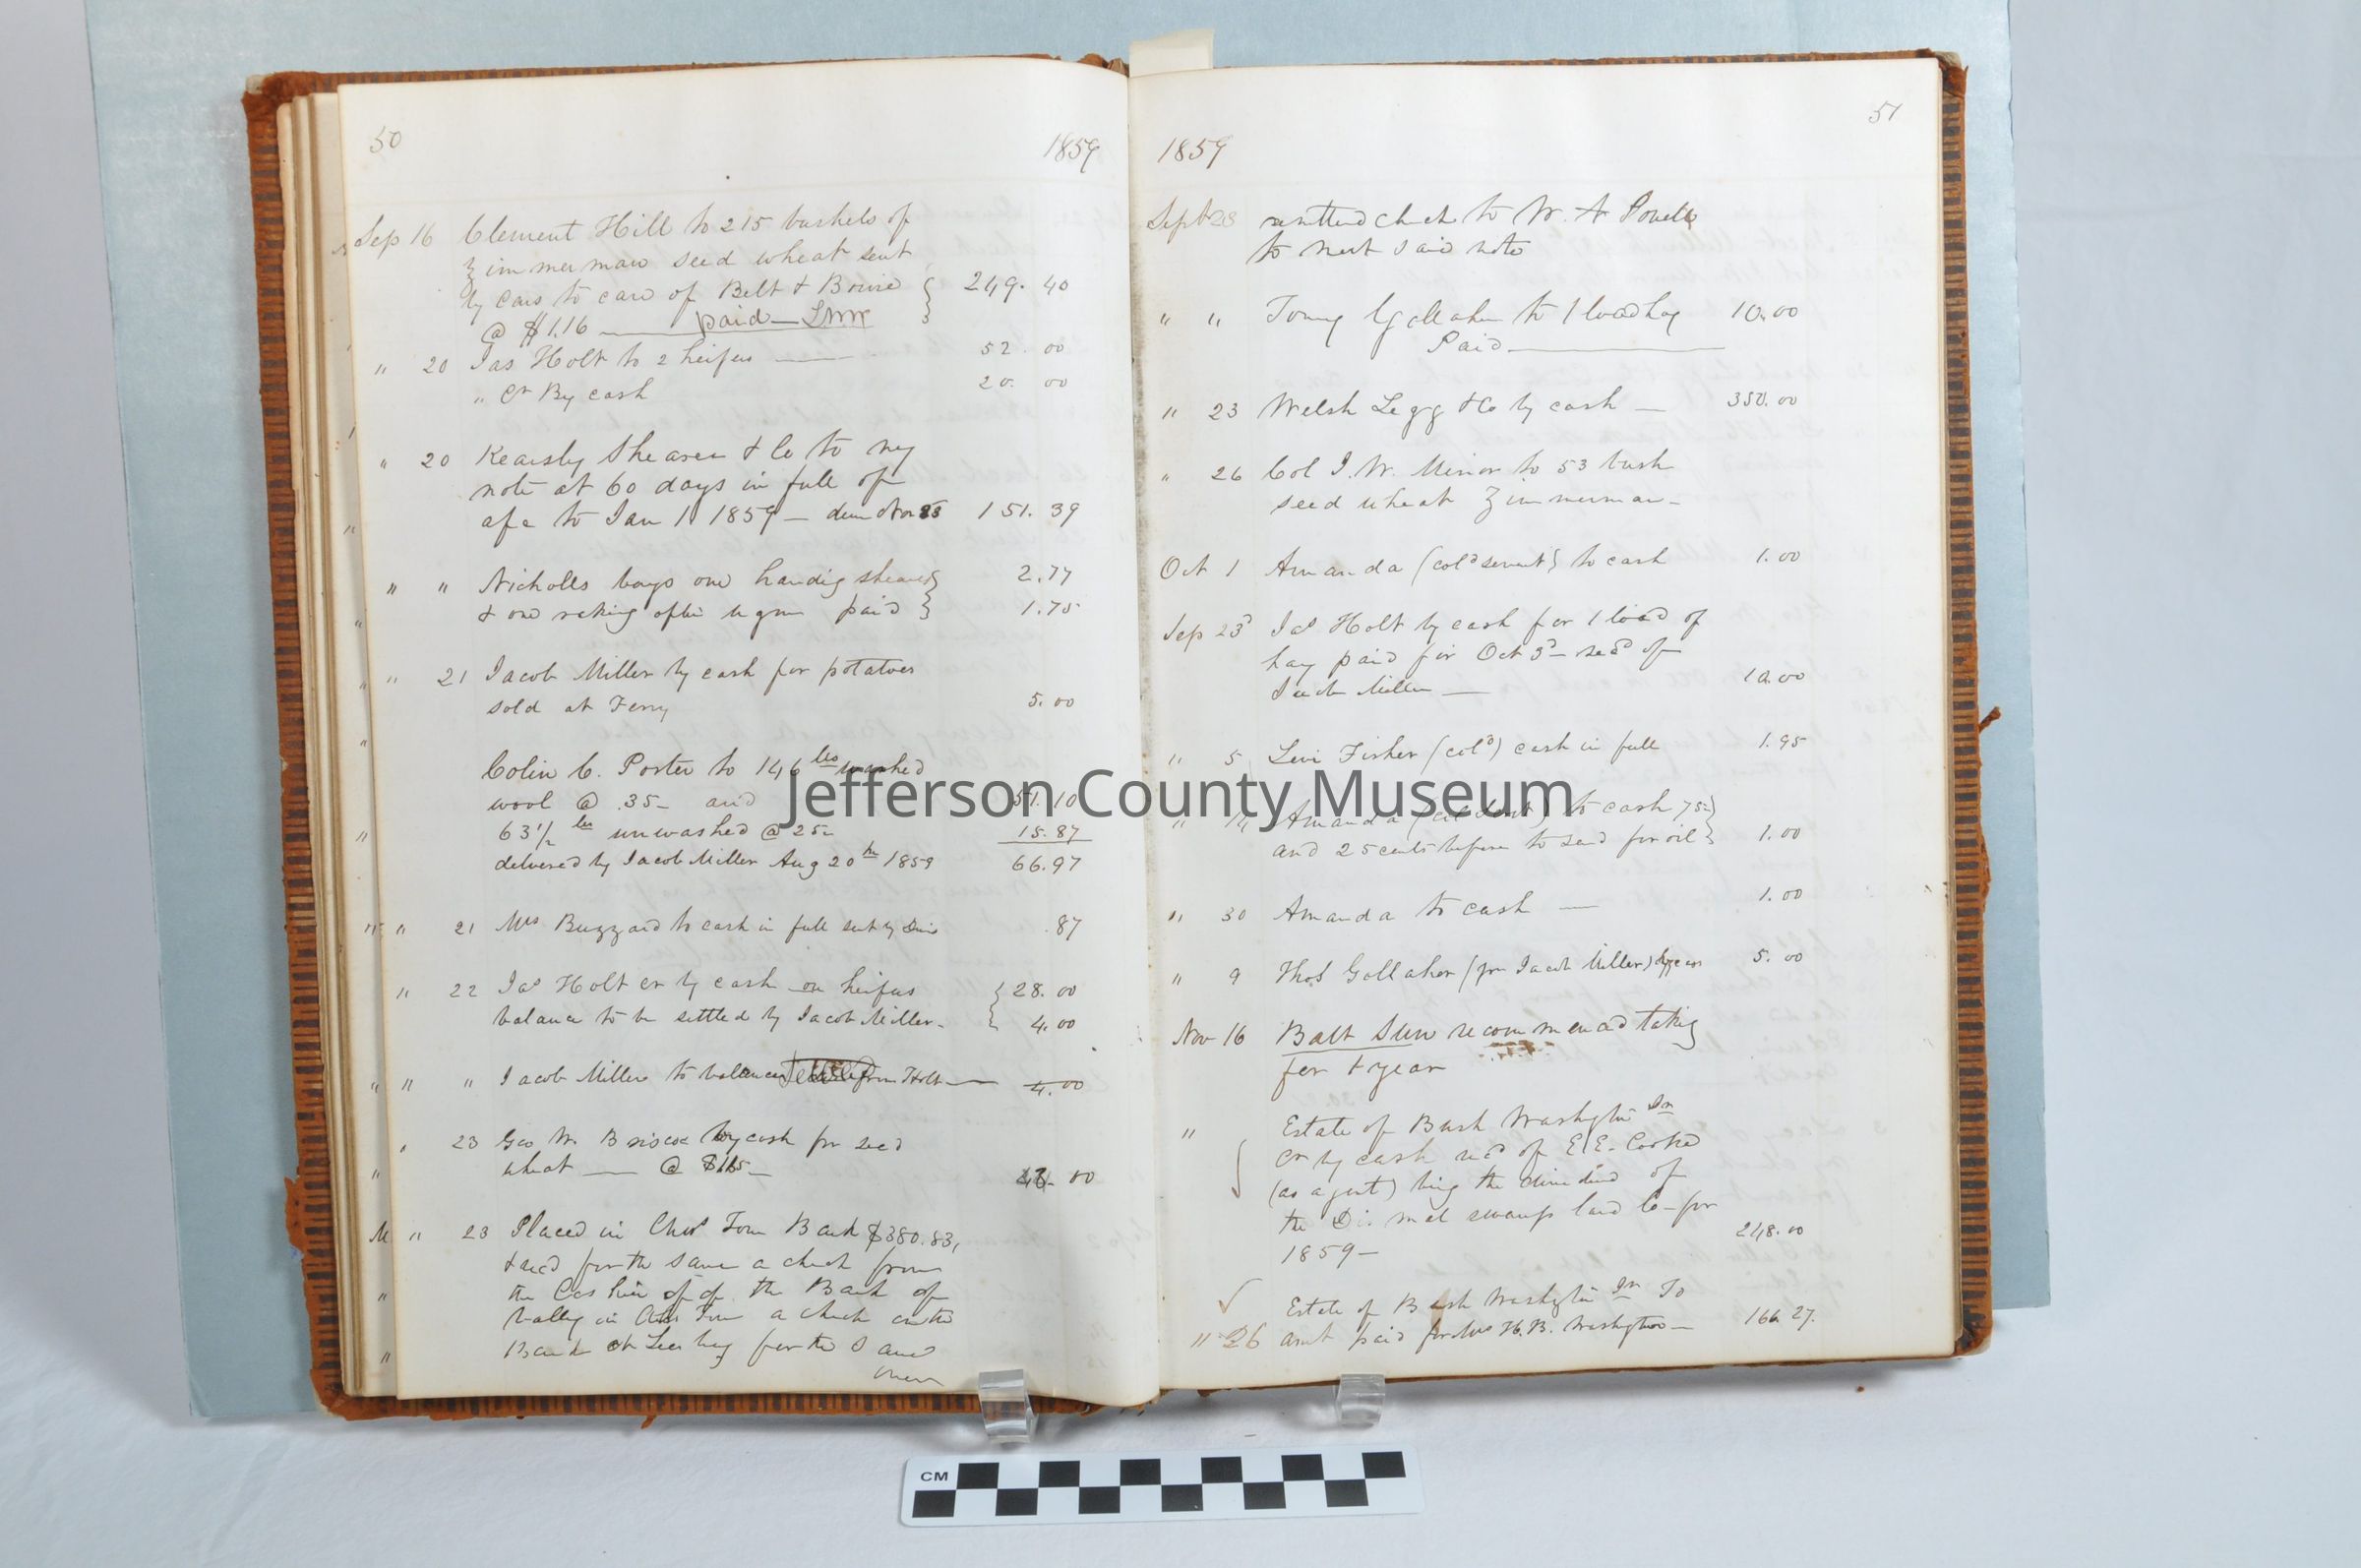 50
1859
Sep 16 Clement Hill to 215 bushels of
Zimmerman seed wheat sent
by cars to care of Belt & Bowie
@ $1.16 — paid — 249.40
" 20 Jas Holt to 2 heifers — 52.00
" Cr By cash 20.00
" 20 Kearsly Shearer & Co to my
note at 60 days in full of
a/c to Jan 1 1859 — 151.39
" " Nicholls boys one handig sheaves 2.77
& one raking after paid 1.75
" 21 Jacob Miller by cash for potatoes
sold at Ferry 5.00
Colin C. Porter to 146 lbs washed
wool @ .35 - and 51.10
63 1/2 lbs unwashed @ 25 15.87
delivered by Jacob Miller Aug 20th 1859 66.97
" 21 Mrs Buzzard to cash in full sent by .87
" 22 Jas Holt cr by cash on heifers 28.00
balance to be settled by Jacob Miller - 4.00
" " Jacob Miller to balance from Holt — 4.00
" 23 Geo W. Briscoe by cash for seed
wheat — @ 00
" 23 Placed in Chas Town Bank $380.83,
& recd for the same a check from
the Cashier of the Bank of
Valley in Chas Town a check on the
Bank at Leesburg for the same
over
51
1859
Sept 28 remitted check to W. A Powell
to meet said note
" " Tomy Gallaher to 1 load hay 10.00
Paid —
" 23 Welsh Legg & Co by cash — 350.00
" 26 Col J. W. Minor to 53 bush
seed wheat Zimmerman -
Oct 1 Amanda (cold servant) to cash 1.00
Sep 23d Jas Holt by cash for 1 load of
hay paid for Oct 3d recd of
Jacob Miller — 10.00
" 5 Levi Fisher (cold) cash in full 1.95
" 14 Amanda to cash 75
and 25 cents before to send for oil 1.00
" 30 Amanda to cash — 1.00
" 9 Thos Gallaher (pr Jacob Miller) by 5.00
Nov 16 Balt Sun recommenced taking
for 1 year
" Estate of Bush Washington Jr
Cr by cash recd of E. E. Cooke
(as agent) being the dividend of
the Dismal swamp land Co - for
1859 - 248.00
Estate of Bush Washington Jr To
" 26 amt paid for Mrs H. B. Washington — 166.27
Jefferson County Museum
CM